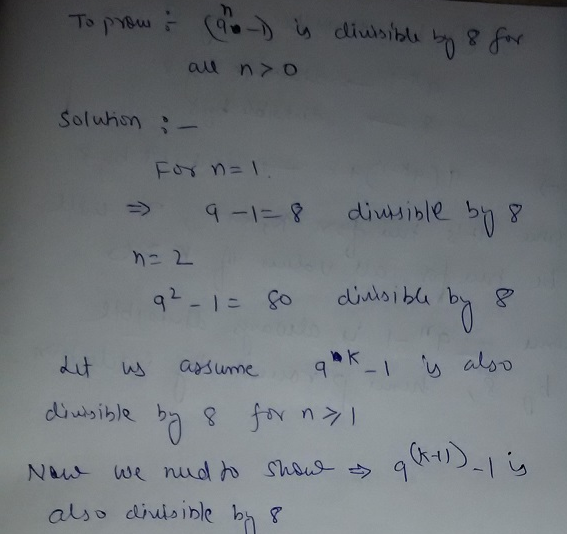 To prove :- (9ⁿ-1) is divisible by 8 for
all n > 0
Solution :-
For n=1.
⇒ 9 -1 = 8 divisible by 8
n= 2
9² - 1 = 80 divisible by 8
Let us assume 9ᵏ - 1 is also
divisible by 8 for n ≥ 1
Now we need to show ⇒ 9⁽ᵏ⁺¹⁾ - 1 is
also divisible by 8